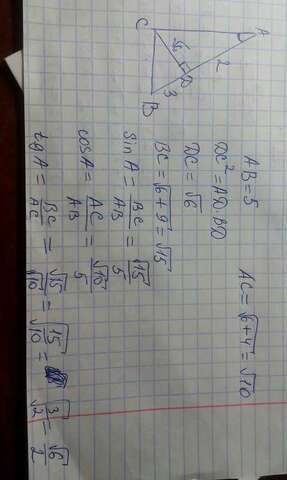 C A
√6 D 2
B 3
AB = 5
DC² = AD · BD
DC = √6
BC = √(6+9) = √15
AC = √(6+4) = √10
sin A = BC/AB = √15/5
cos A = AC/AB = √10/5
tg A = BC/AC = √15/√10 = √(15/10) = √(3/2) √6/2